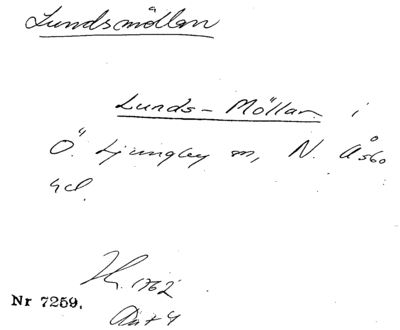 Lundsmöllan
Lunds-Möllan i
Ö. Ljungby sn, N. Åsbo
hd.
1762
Nr 7259.